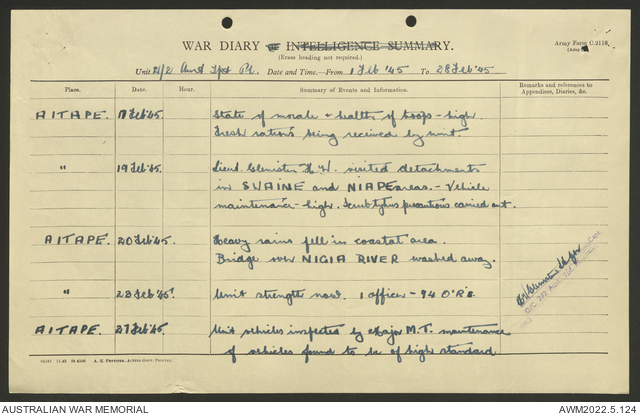 WAR DIARY or INTELLIGENCE SUMMARY.
Army Form C.2118.
(Erase heading not required.)
Unit 2/2 Aust Tpt Pl. Date and Time.—From 1 Feb '45 To 28 Feb '45
Place. Date. Hour. Summary of Events and Information. Remarks and references to
Appendices, Diaries, &c.
AITAPE 17 Feb '45. State of morale & health of troops - high.
Fresh rations being received by unit.
" 19 Feb '45. Lieut. H.W. visited detachments
in SUAINE and NIAPE areas. - Vehicle
maintenance - high. Scrub typhus precautions carried out.
AITAPE. 20 Feb '45. Heavy rains fell in coastal area.
Bridge over NIGIA RIVER washed away.
" 23 Feb '45. Unit strength now. 1 officer - 94 O'R's
AITAPE. 27 Feb '45. Unit vehicles inspected by Major M.T. maintenance
of vehicles found to be of high standard
O/C 2/2
A. H. Pettifer, Acting Govt. Printer.
AUSTRALIAN WAR MEMORIAL
AWM2022.5.124